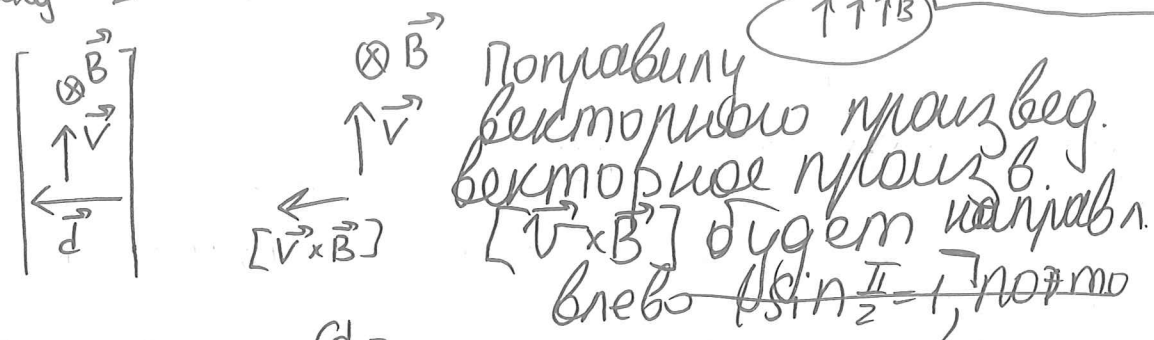 ↑↑↑B
⊗ B⃗
⊗ B⃗
По правилу
V⃗
V⃗
векторного произвед.
векторное произв.
d⃗
[V⃗×B⃗]
[V⃗×B⃗] будет направл.
влево sin π/2 = 1, поэто